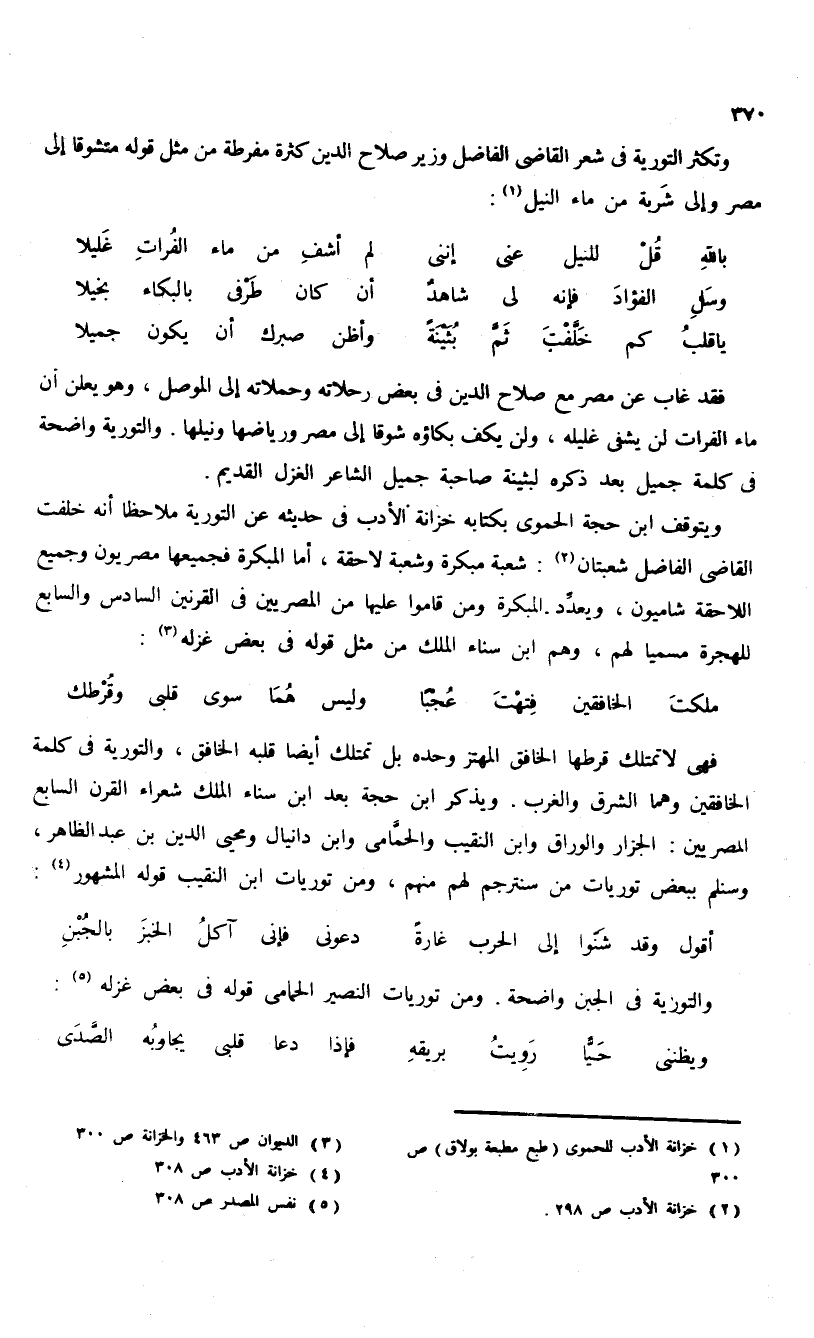 ٣٧٠
وتكثر التورية فى شعر القاضى الفاضل وزير صلاح الدين كثرة مفرطة من مثل قوله متشوقا إلى
مصر وإلى شَربة من ماء النيل(١) :
باللهِ قُلْ للنيل عنى إننى لم أشفِ من ماء الفُراتِ غَليلا
وسَلِ الفؤادَ فإنه لى شاهدٌ أن كان طَرْفى بالبكاء بخيلا
ياقلبُ كم خَلَّفْتَ ثَمَّ بُثَيْنَةً وأظن صبرك أن يكون جميلا
فقد غاب عن مصر مع صلاح الدين فى بعض رحلاته وحملاته إلى الموصل ، وهو يعلن أن
ماء الفرات لن يشفى غليله ، ولن يكف بكاؤه شوقا إلى مصر ورياضها ونيلها . والتورية واضحة
فى كلمة جميل بعد ذكره لبثينة صاحبة جميل الشاعر الغزل القديم .
ويتوقف ابن حجة الحموى بكتابه خزانة الأدب فى حديثه عن التورية ملاحظا أنه خلفت
القاضى الفاضل شعبتان(٢) : شعبة مبكرة وشعبة لاحقة ، أما المبكرة فجميعها مصريون وجميع
اللاحقة شاميون ، ويعدِّد المبكرة ومن قاموا عليها من المصريين فى القرنين السادس والسابع
للهجرة مسميا لهم ، وهم ابن سناء الملك من مثل قوله فى بعض غزله(٣) :
ملكتَ الخافقين فِتهْتَ عُجْبًا وليس هُمَا سوى قلبى وقُرْطك
فهى لاتمتلك قرطها الخافق المهتز وحده بل تمتلك أيضا قلبه الخافق ، والتورية فى كلمة
الخافقين وهما الشرق والغرب . ويذكر ابن حجة بعد ابن سناء الملك شعراء القرن السابع
المصريين : الجزار والوراق وابن النقيب والحمَّامى وابن دانيال ومحيى الدين بن عبدالظاهر ،
وسنلم ببعض توريات من سنترجم لهم منهم ، ومن توريات ابن النقيب قوله المشهور(٤) :
أقول وقد شَنّوا إلى الحرب غارةً دعونى فإنى آكلُ الخبزَ بالجُبْنِ
والتوزية فى الجبن واضحة . ومن توريات النصير الحمامى قوله فى بعض غزله (٥) :
ويظننى حَيًّا رَويتُ بريقهِ فإذا دعا قلبى يجاوبُه الصَّدَى
(١) خزانة الأدب للحموى (طبع مطبعة بولاق) ص
٣٠٠
(٢) خزانة الأدب ص ٢٩٨ .
(٣) الديوان ص ٤٦٣ والخزانة ص ٣٠٠
(٤) خزانة الأدب ص ٣٠٨
(٥) نفس المصدر ص ٣٠٨